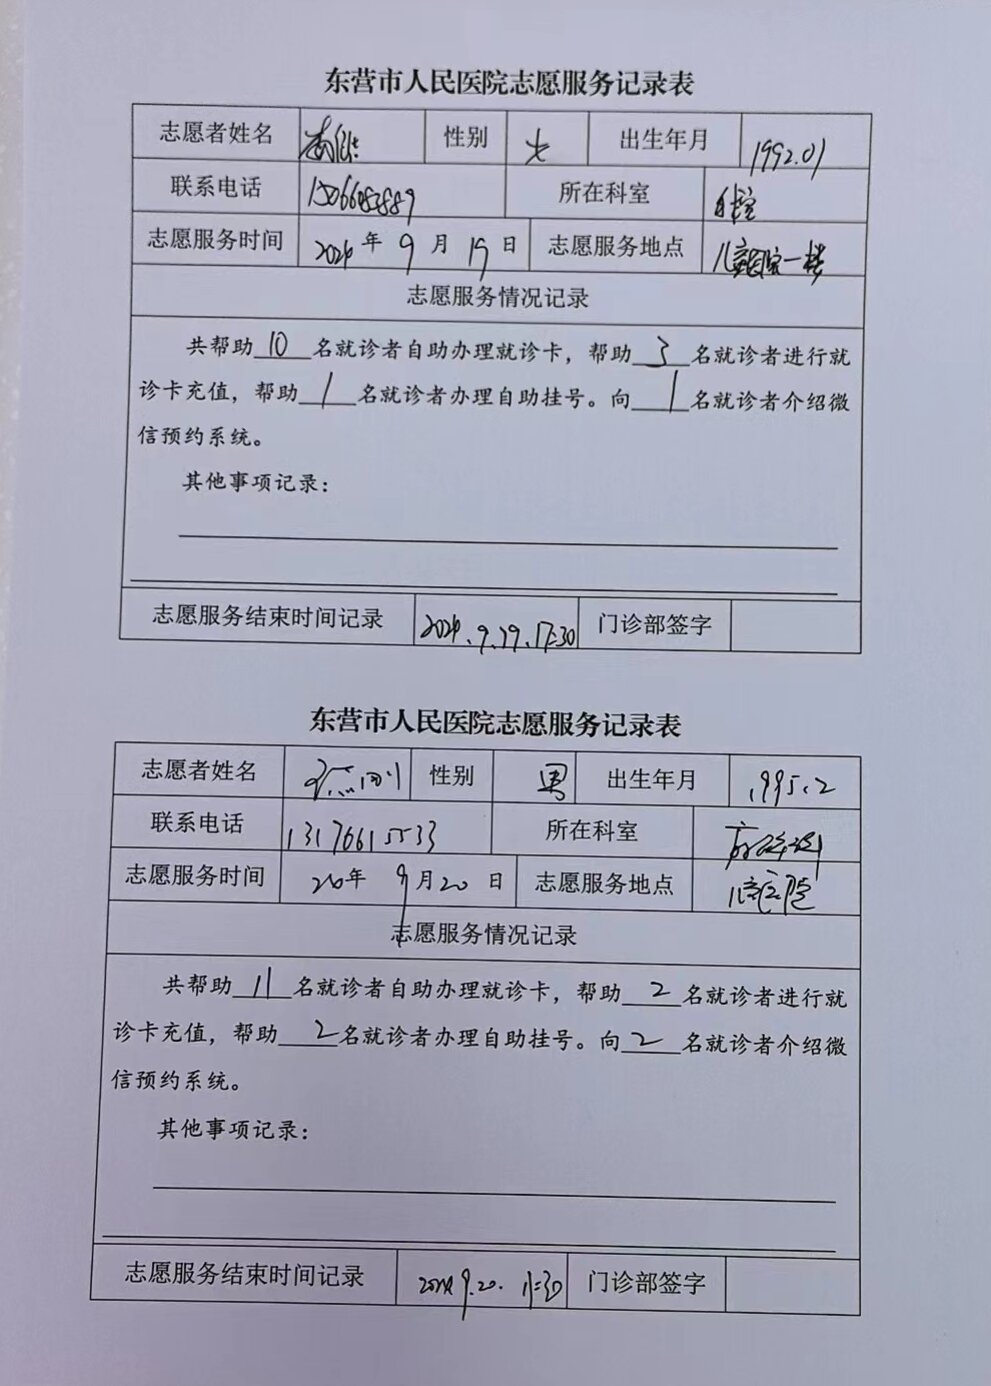 东营市人民医院志愿服务记录表
志愿者姓名 性别 女 出生年月 1992.01
联系电话 所在科室
志愿服务时间 2024年9月19日 志愿服务地点 儿童医院一楼
志愿服务情况记录
共帮助10名就诊者自助办理就诊卡，帮助3名就诊者进行就
诊卡充值，帮助1名就诊者办理自助挂号。向1名就诊者介绍微
信预约系统。
其他事项记录：
志愿服务结束时间记录 2024.9.19.17:30 门诊部签字
东营市人民医院志愿服务记录表
志愿者姓名 性别 男 出生年月 1995.2
联系电话 13176615533 所在科室
志愿服务时间 年9月20日 志愿服务地点 儿童医院
志愿服务情况记录
共帮助11名就诊者自助办理就诊卡，帮助2名就诊者进行就
诊卡充值，帮助2名就诊者办理自助挂号。向2名就诊者介绍微
信预约系统。
其他事项记录：
志愿服务结束时间记录 2024.9.20. 11:30 门诊部签字